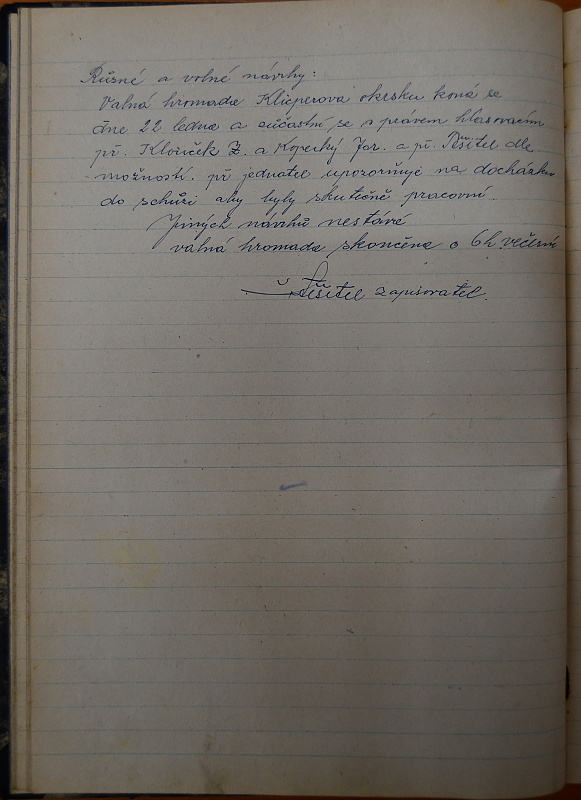 Různé a volné návrhy:
Valná hromada Klicperova okrsku koná se
dne 22 ledna a súčastní se s právem hlasovacím
př. Klouček Z. a Kopecký Jar. a př. Těšitel dle
možností. př jednatel upozorňuje na docházku
do schůzí aby byly skutečně pracovní.
Jiných návrhů nestává
valná hromada skončena o 6h večerní
Těšitel zapisovatel.